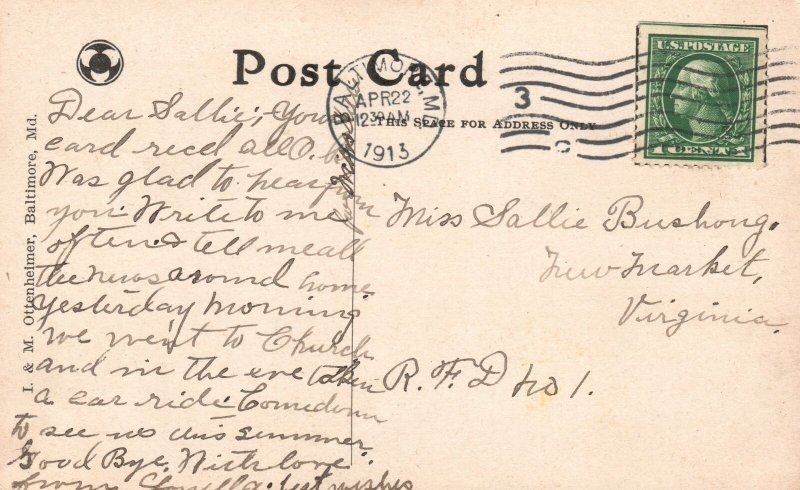 Post Card
BALTIMORE, MD.
APR 22
12 30 AM
1913
3
U.S. POSTAGE
1 CENT 1
THIS SPACE FOR ADDRESS ONLY
I. & M. Ottenheimer, Baltimore, Md.
Dear Sallie; Your
card recd all O.
Was glad to hear from
you. Write to me
often & tell me all
the news around home.
Yesterday Morning
we went to Church
and in the eve
a car ride. Come down
to see us this summer.
Good Bye. With love
from best wishes
Miss Sallie Bushong.
New Market,
Virginia.
R. F. D no 1.